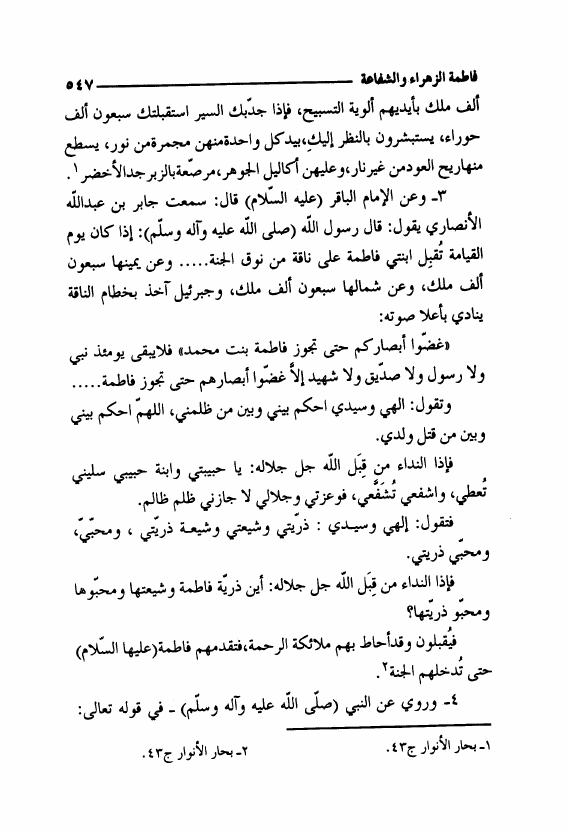 فاطمة الزهراء والشفاعة ٥٤٧
ألف ملك بأيديهم ألوية التسبيح، فإذا جدّبك السير استقبلتك سبعون ألف
حوراء، يستبشرون بالنظر إليكِ،بيدكل واحدةمنهن مجمرةمن نور، يسطع
منهاريح العودمن غيرنار،وعليهن أكاليل الجوهر،مرصّعةبالزبرجدالأخضر١.
٣ـ وعن الإمام الباقر (عليه السّلام) قال: سمعت جابر بن عبدالله
الأنصاري يقول: قال رسول الله (صلى الله عليه وآله وسلّم): إذا كان يوم
القيامة تُقبِل ابنتي فاطمة على ناقة من نوق الجنة..... وعن يمينها سبعون
ألف ملك، وعن شمالها سبعون ألف ملك، وجبرئيل آخذ بخطام الناقة
ينادي بأعلا صوته:
«غضّوا أبصاركم حتى تجوز فاطمة بنت محمد» فلايبقى يومئذ نبي
ولا رسول ولا صدّيق ولا شهيد إلاّ غضّوا أبصارهم حتى تجوز فاطمة.....
وتقول: الهي وسيدي احكم بيني وبين من ظلمني، اللهمّ احكم بيني
وبين من قتل ولدي.
فإذا النداء من قِبَل الله جل جلاله: يا حبيبتي وابنة حبيبي سليني
تُعطي، واشفعي تُشَفَّعي، فوعزتي وجلالي لا جازني ظلم ظالم.
فتقول: إلهي وسيدي : ذرّيتي وشيعتي وشيعة ذريّتي ، ومحبّيّ،
ومحبّي ذريتي.
فإذا النداء من قِبَل الله جل جلاله: أين ذريّة فاطمة وشيعتها ومحبّوها
ومحبّو ذريّتها؟
فيُقبلون وقدأحاط بهم ملائكة الرحمة،فتقدمهم فاطمة(عليها السّلام)
حتى تُدخلهم الجنة٢.
٤ـ وروي عن النبي (صلّى الله عليه وآله وسلّم) ـ في قوله تعالى:
١ـ بحار الأنوار ج٤٣. ٢ـ بحار الأنوار ج٤٣.